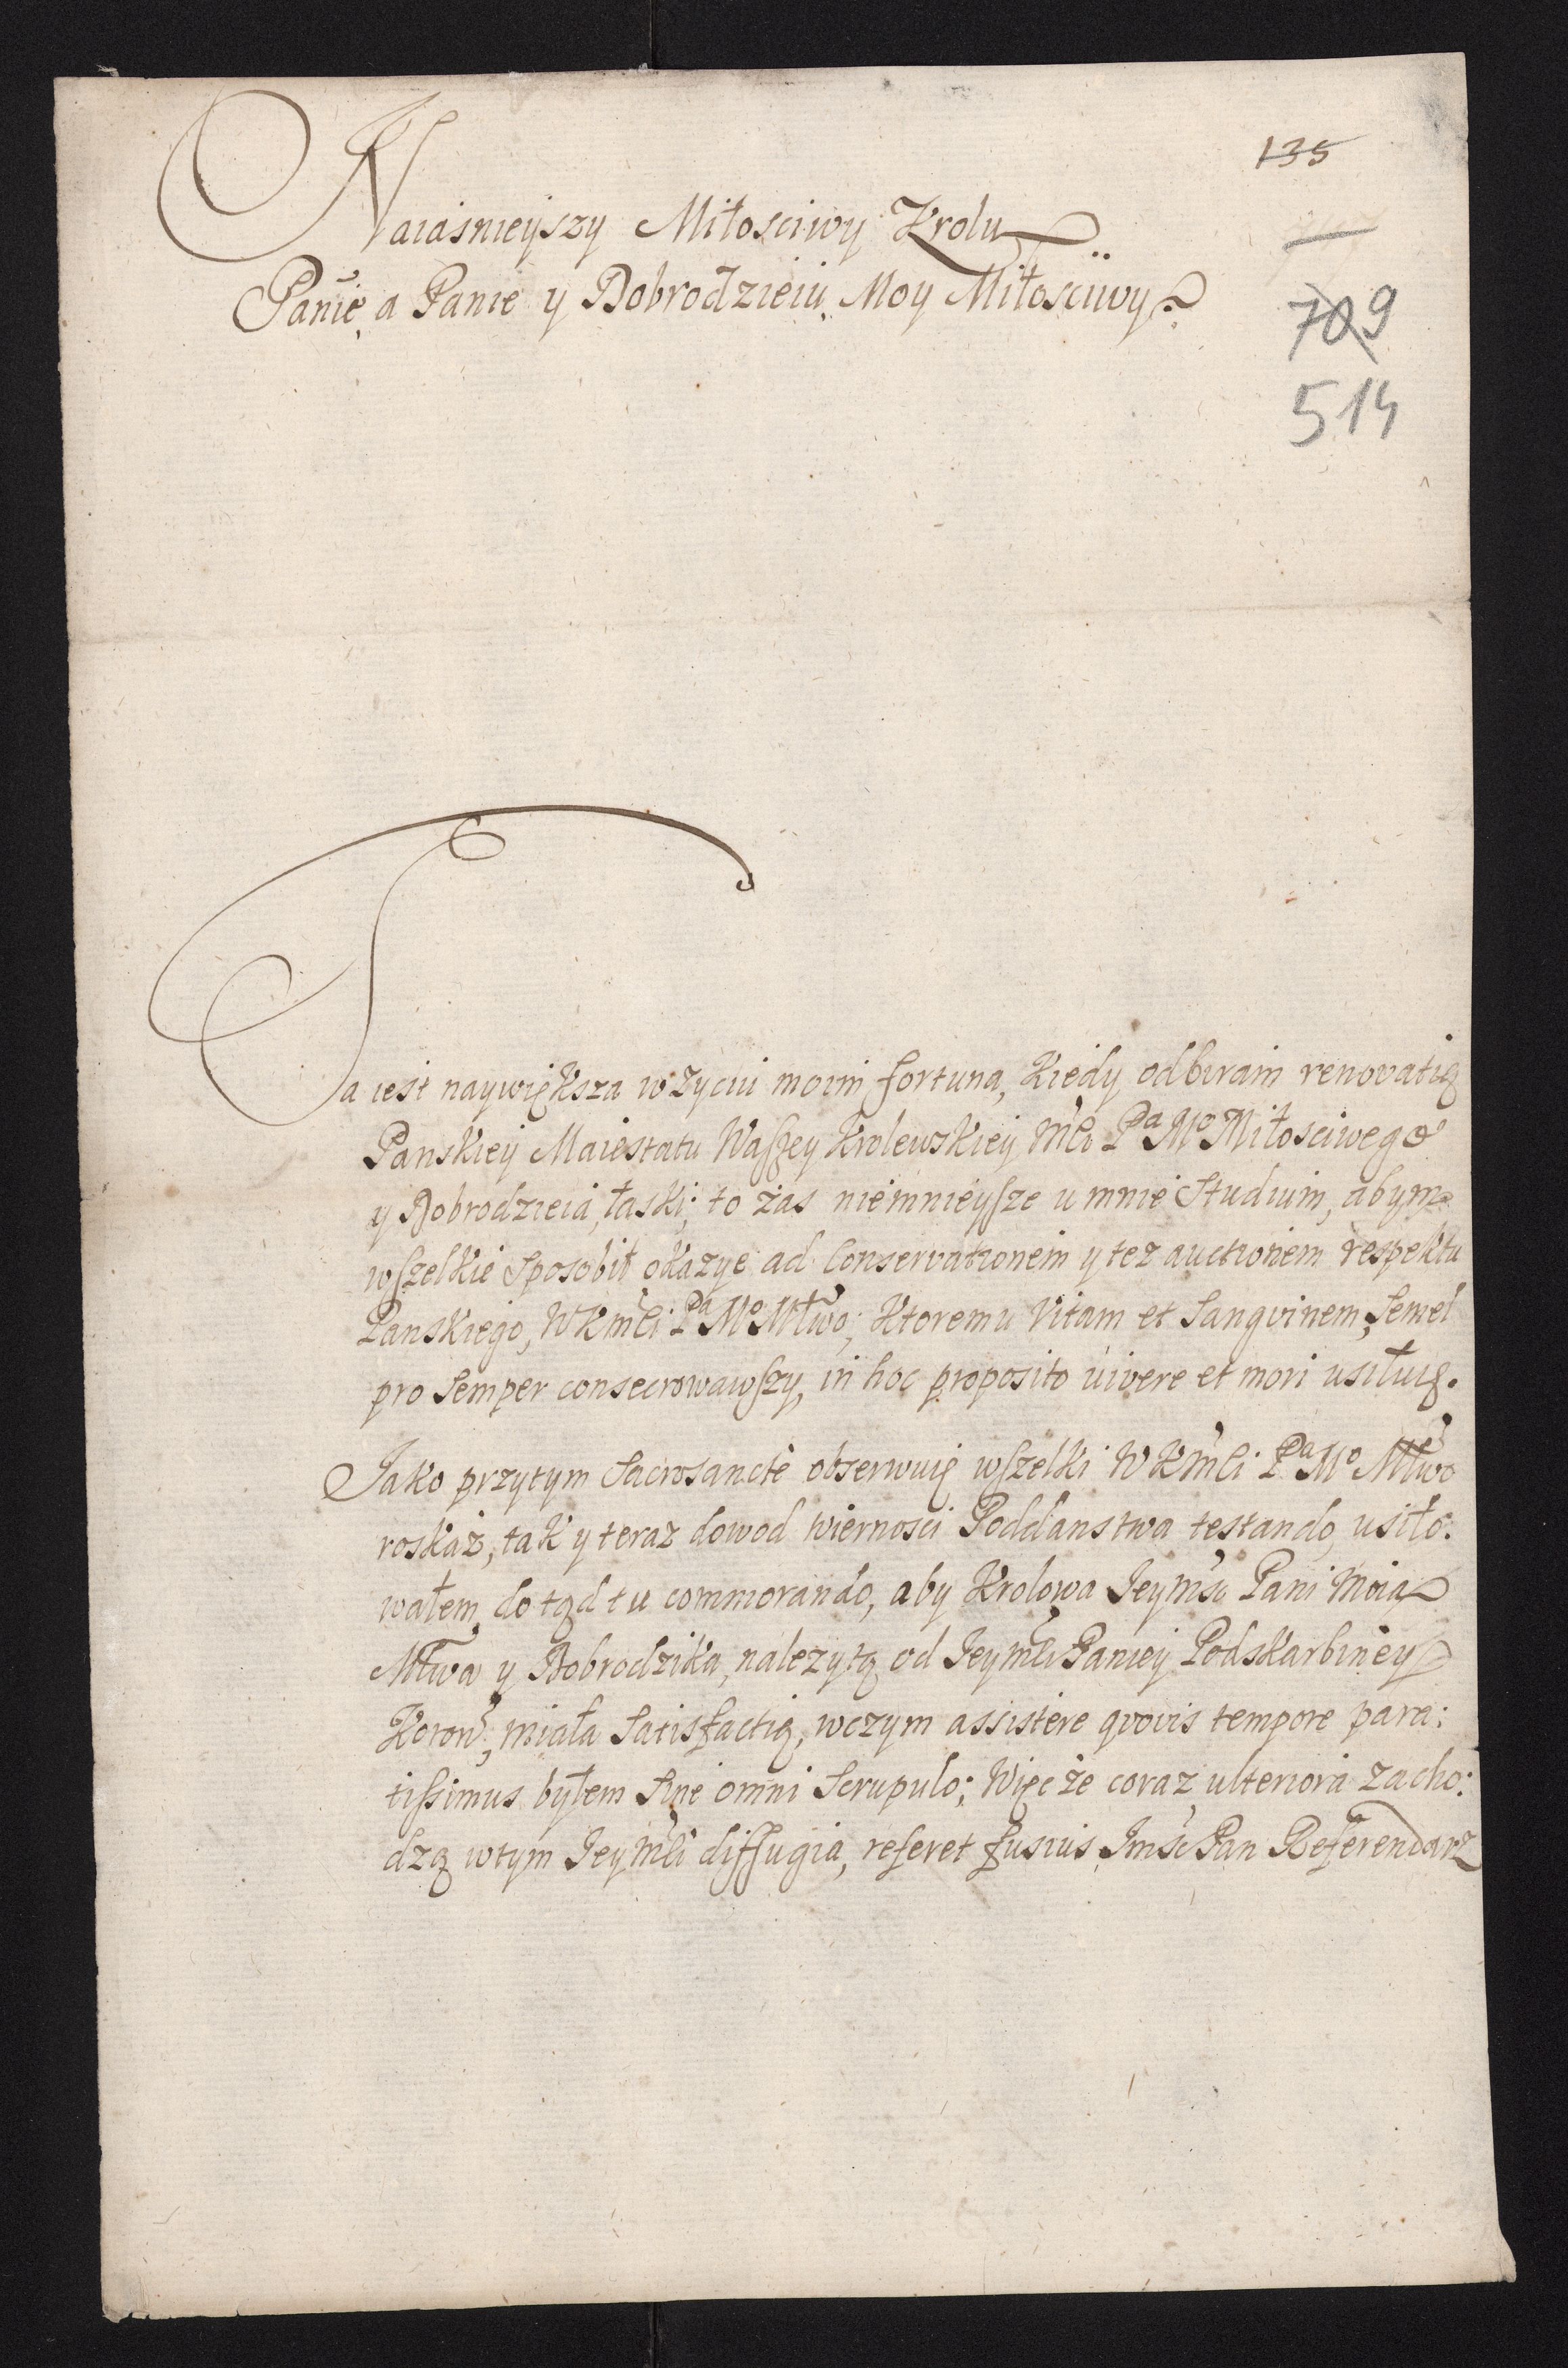 135
Naiásnieyszy Miłosciwy Krolu
Panie, a Panie y Dobrodzieiu, Moy Miłosciwy
709
514
Ta iest naywiększa w zyciu moim fortuna, Kiedy odbiram renovatią
Panskiey Maiestatu Waszey Krolewskiey Mći Pa Mo Miłosciwego
y Dobrodzieia, łaski; to zas niemnieysze u mnie Studium, abym
wszelkie Sposobił okazye ad Conservationem y tez auctionem respektu
Panskiego, WKmći Pa Mo Młwo; Ktoremu Vitam et Sangvinem, Semel
pro Semper consecrowawszy, in hoc proposito vivere et mori usiłuię.
Jako przytym Sacrosancte obserwuię wszelki WKmći Pa Mo Młwo
roskaz, tak y teraz dowod wiernosci Poddanstwa testando, usiło:
wałem, do tąd tu commorando, aby Krolowa Jeymść Pani Moia
Młwa y Dobrodzika, nalezytą od Jeymći Paniey Podskarbiney
Koron, miała Satisfactią, wczym assistere qvovis tempore para:
tissimus byłem Sine omni Scrupulo; Więc że coraz ulteriora zacho:
dzą wtym Jeymći diffugia, referet fusius Jmść Pan Referendarz